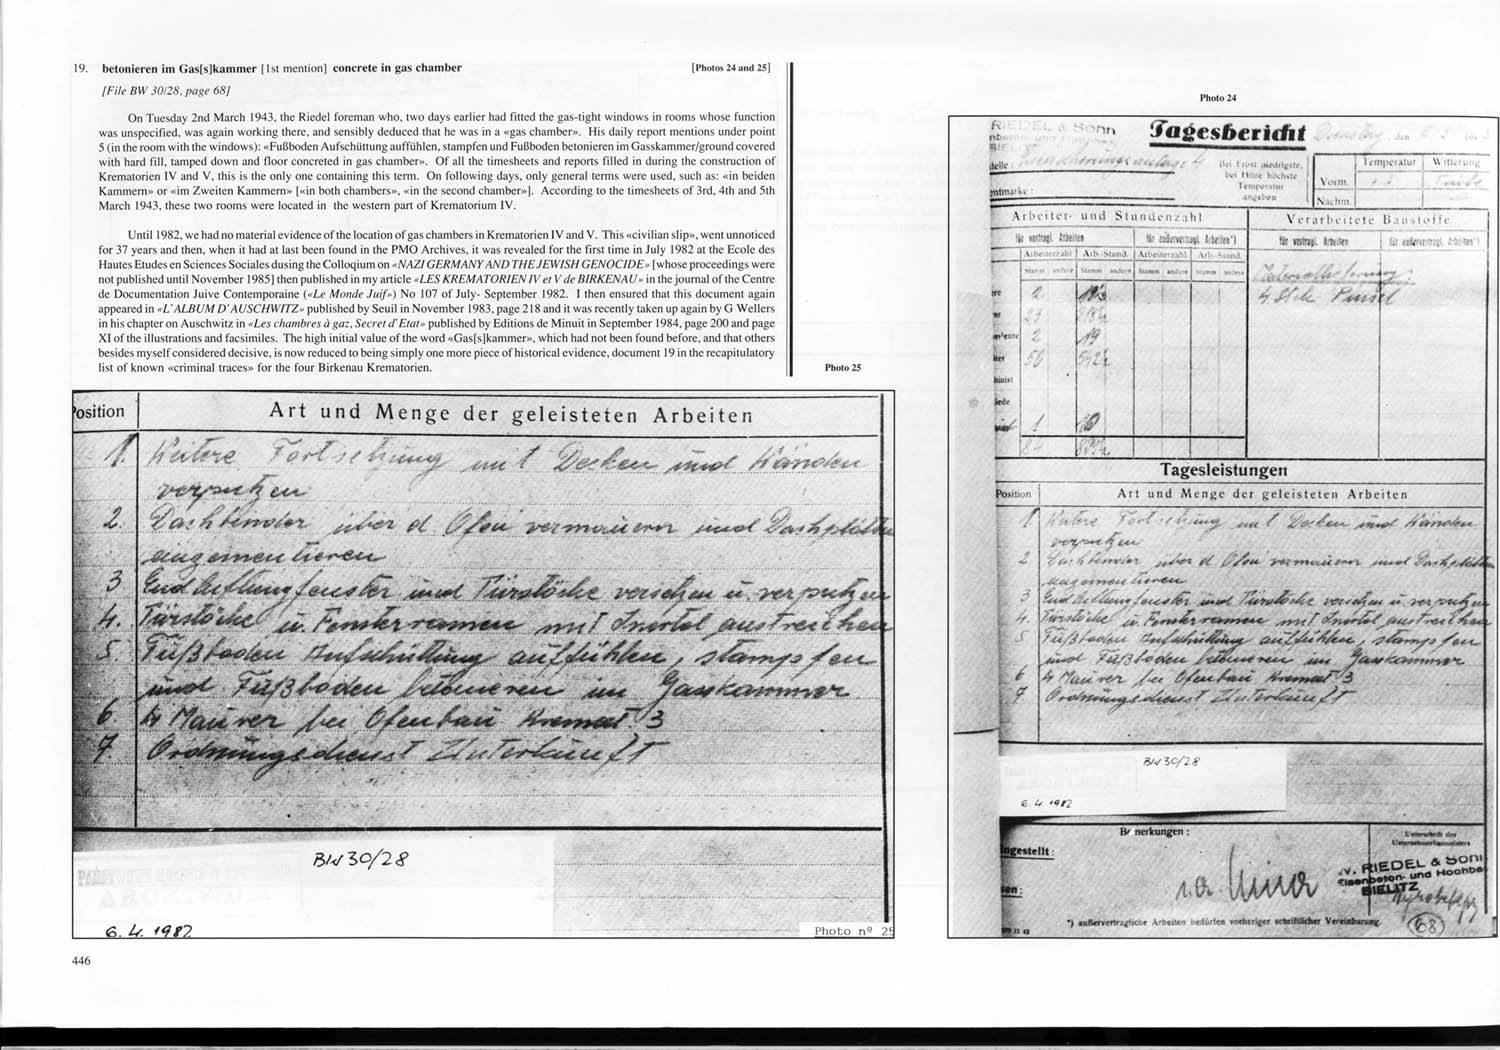 19. betonieren im Gas[s]kammer [1st mention] concrete in gas chamber [Photos 24 and 25]
[File BW 30/28, page 68]
On Tuesday 2nd March 1943, the Riedel foreman who, two days earlier had fitted the gas-tight windows in rooms whose function
was unspecified, was again working there, and sensibly deduced that he was in a «gas chamber». His daily report mentions under point
5 (in the room with the windows): «Fußboden Aufschüttung auffühlen, stampfen und Fußboden betonieren im Gasskammer/ground covered
with hard fill, tamped down and floor concreted in gas chamber». Of all the timesheets and reports filled in during the construction of
Krematorien IV and V, this is the only one containing this term. On following days, only general terms were used, such as: «in beiden
Kammern» or «im Zweiten Kammern» [«in both chambers», «in the second chamber»]. According to the timesheets of 3rd, 4th and 5th
March 1943, these two rooms were located in the western part of Krematorium IV.
Until 1982, we had no material evidence of the location of gas chambers in Krematorien IV and V. This «civilian slip», went unnoticed
for 37 years and then, when it had at last been found in the PMO Archives, it was revealed for the first time in July 1982 at the Ecole des
Hautes Etudes en Sciences Sociales dusing the Colloqium on «NAZI GERMANY AND THE JEWISH GENOCIDE» [whose proceedings were
not published until November 1985] then published in my article «LES KREMATORIEN IV et V de BIRKENAU» in the journal of the Centre
de Documentation Juive Contemporaine («Le Monde Juif») No 107 of July- September 1982. I then ensured that this document again
appeared in «L'ALBUM D'AUSCHWITZ» published by Seuil in November 1983, page 218 and it was recently taken up again by G Wellers
in his chapter on Auschwitz in «Les chambres à gaz, Secret d'Etat» published by Editions de Minuit in September 1984, page 200 and page
XI of the illustrations and facsimiles. The high initial value of the word «Gas[s]kammer», which had not been found before, and that others
besides myself considered decisive, is now reduced to being simply one more piece of historical evidence, document 19 in the recapitulatory
list of known «criminal traces» for the four Birkenau Krematorien.
Photo 25
Position Art und Menge der geleisteten Arbeiten
1. Weitere Fortsetzung mit Decken und Wänden
verputzen
2. Dachbinder über d. Ofen vermauern und Dachplatten
3 Endlüftungfenster und Türstöcke versetzen u. verputzen
4. Türstöcke u. Fensterramen mit Inertol austreichen
5. Fußboden Aufschüttung auffühlen, stampfen
und Fußboden betonieren im Gasskammer
6. 4 Maurer bei Ofenbau Kremat. 3
7. Ordnungsdienst Unterkunft
BW 30/28
6. 4. 1982
Photo nº 25
446
Photo 24
RIEDEL & Sohn
Tagesbericht
Dienstag, den
Bei Frost niedrigste,
bei Hitze höchste
Temperatur
angeben
Temperatur Witterung
Vorm.
Nachm.
Arbeiter- und Stundenzahl Verarbeitete Baustoffe
für vertragl. Arbeiten für außervertragl. Arbeiten*) für vertragl. Arbeiten für außervertragl. Arbeiten*)
Arbeiterzahl Arb.-Stund. Arbeiterzahl Arb.-Stund.
Stamm andere Stamm andere Stamm andere Stamm andere
4 Stck Pinsel
2
23
2 19
56
1 10
84
Tagesleistungen
Position Art und Menge der geleisteten Arbeiten
1. Weitere Fortsetzung mit Decken und Wänden
verputzen
2 Dachbinder über d. Ofen vermauern und Dachplatten
3 Endlüftungfenster und Türstöcke versetzen u. verputzen
4. Türstöcke u. Fensterramen mit Inertol austreichen
5 Fußboden Aufschüttung auffühlen, stampfen
und Fußboden betonieren im Gasskammer
6 4 Maurer bei Ofenbau Kremat. 3
7 Ordnungsdienst Unterkunft
BW 30/28
6. 4. 1982
Bemerkungen:
Unterschrift des
Unternehmerbaumeisters
W. RIEDEL & Sohn
Eisenbeton- und Hochbau
BIELITZ
*) außervertragliche Arbeiten bedürfen vorheriger schriftlicher Vereinbarung.
68